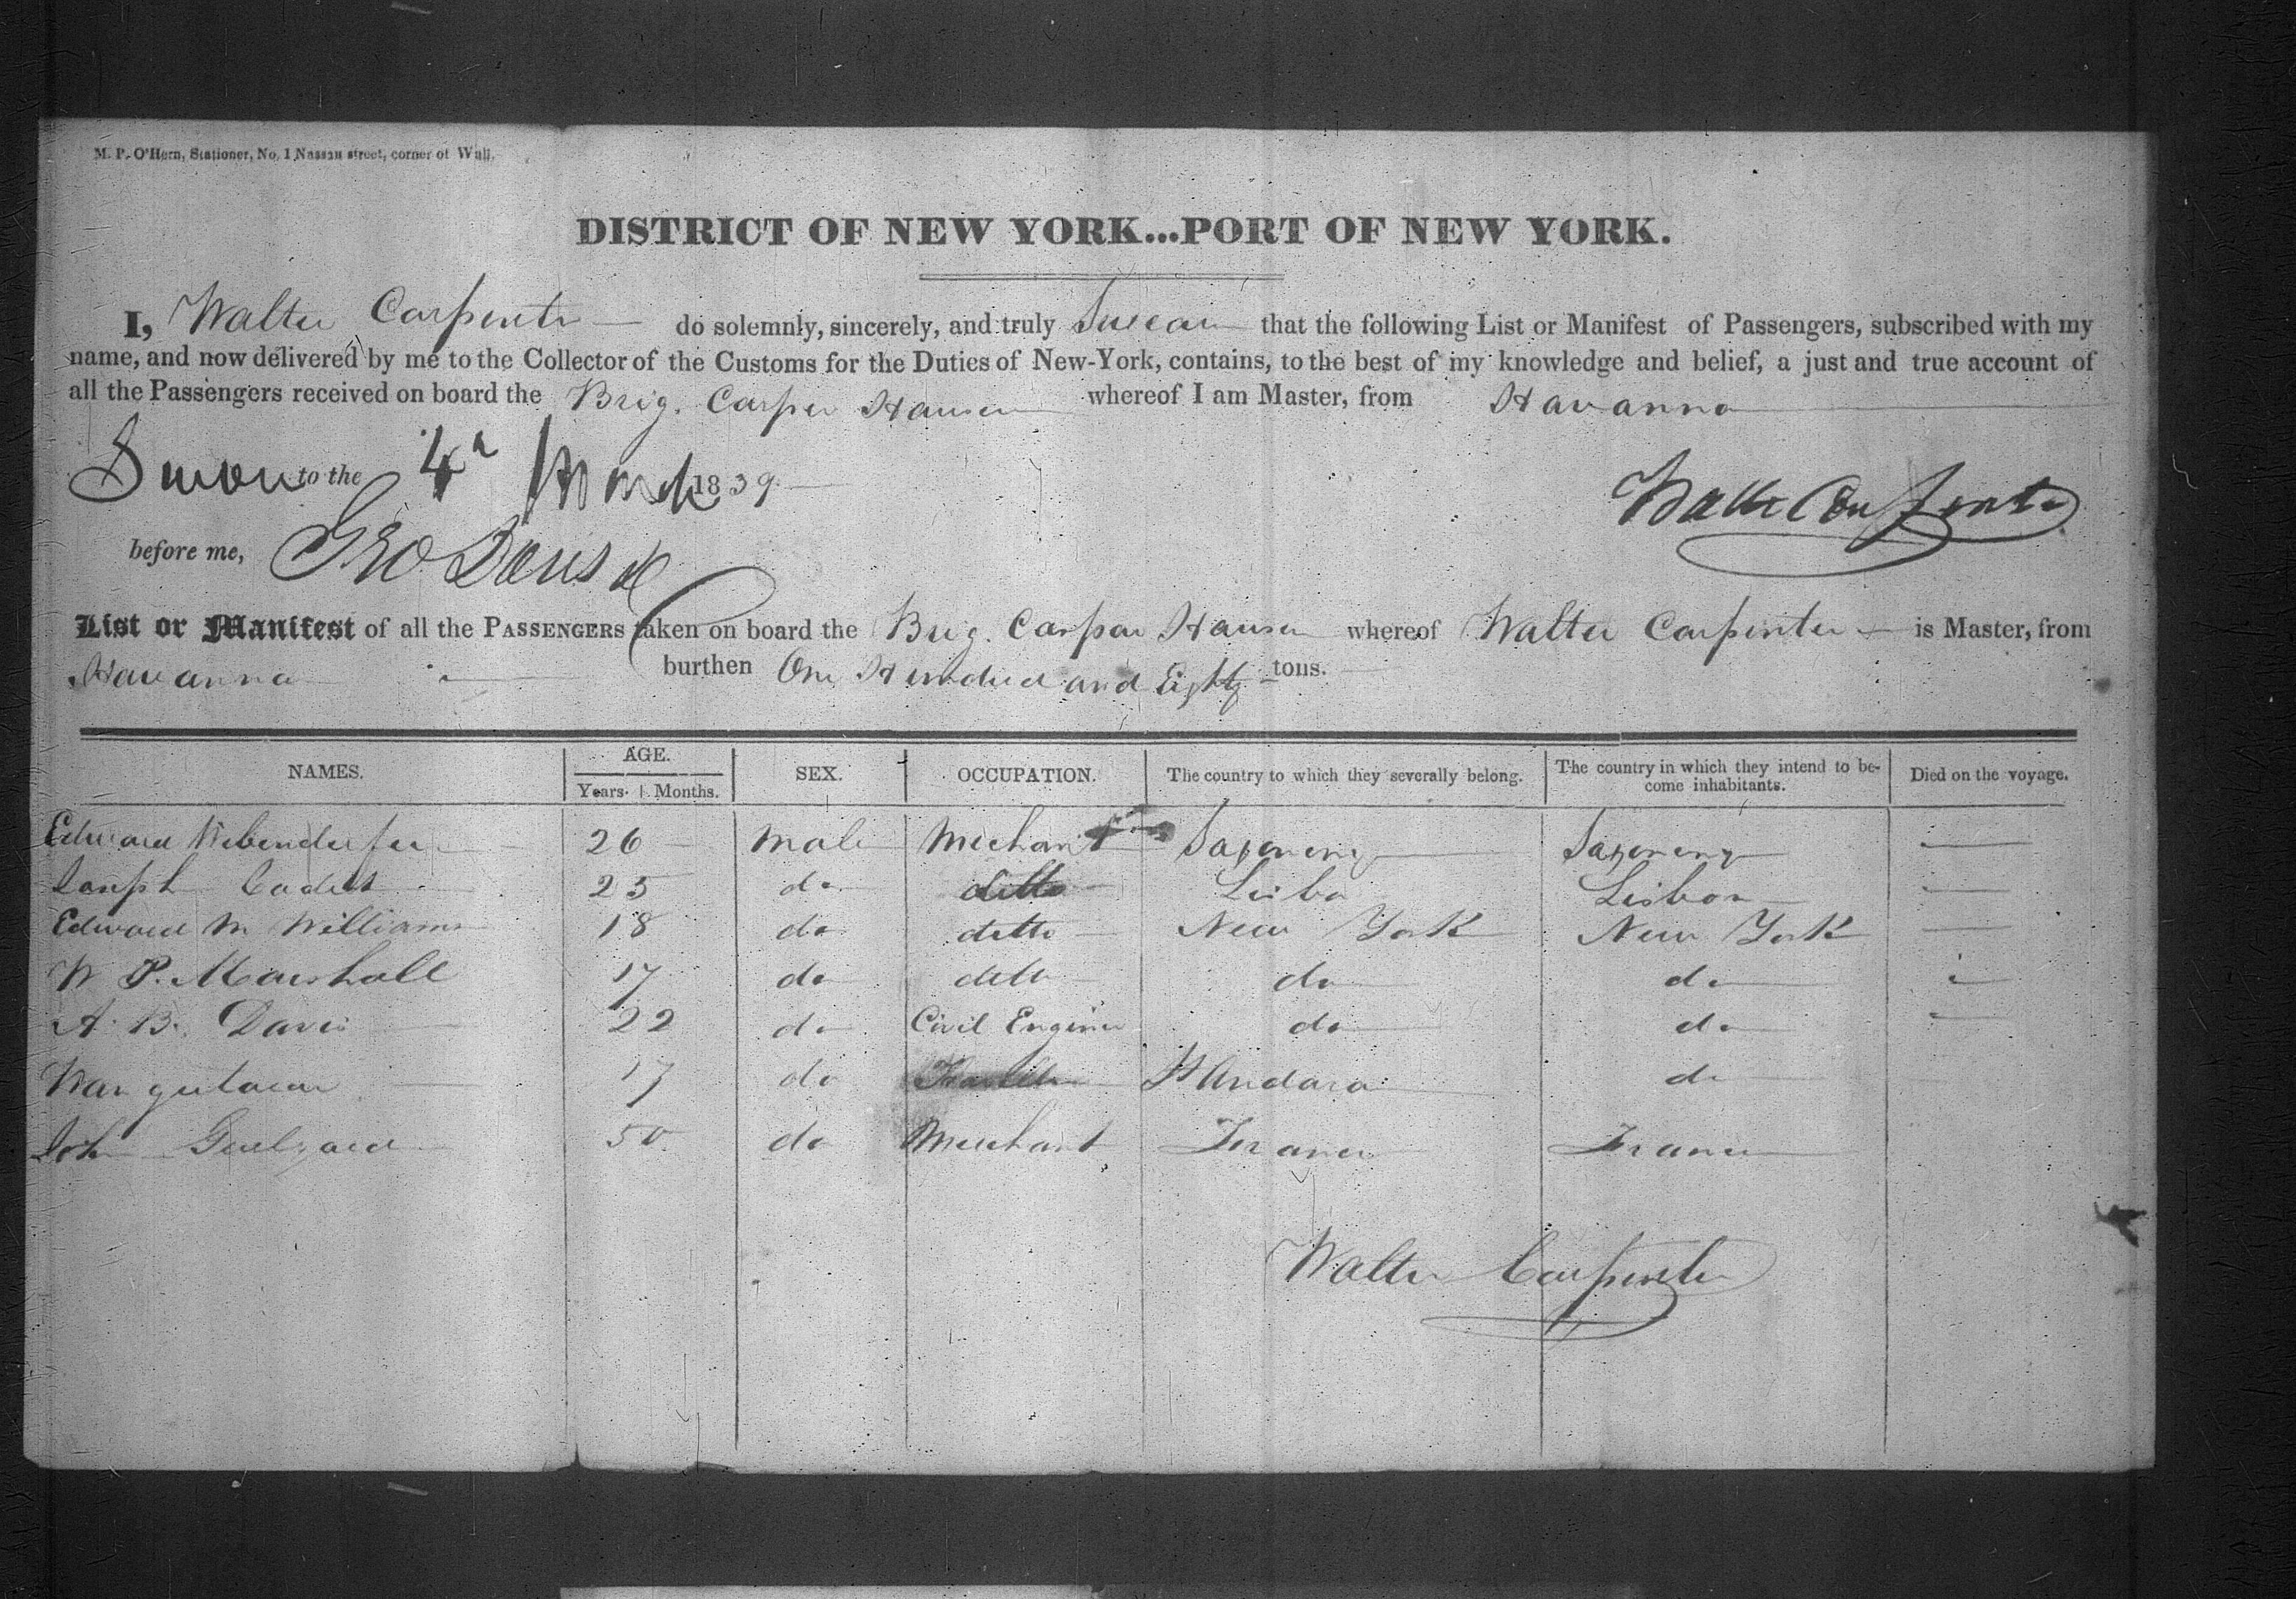 M. P. O'Hern, Stationer, No. 1 Nassau street, corner of Wall.
DISTRICT OF NEW YORK...PORT OF NEW YORK.
I, Walter Carpenter do solemnly, sincerely, and truly Swear that the following List or Manifest of Passengers, subscribed with my
name, and now delivered by me to the Collector of the Customs for the Duties of New-York, contains, to the best of my knowledge and belief, a just and true account of
all the Passengers received on board the Brig. Casper Hauser whereof I am Master, from Havanna
Sworn to the 4th March 1839
Walter Carpenter
before me, Geo Davis
List or Manifest of all the PASSENGERS taken on board the Brig. Caspar Hauser whereof Walter Carpenter is Master, from
Havanna burthen One Hundred and Eighty tons.
NAMES. AGE. SEX. OCCUPATION. The country to which they severally belong. The country in which they intend to be- Died on the voyage.
Years. Months. come inhabitants.
Edward 26 Male Merchant Saxoneny Saxoneny
Joseph Cadet 25 do ditto Lisbo Lisbon
Edward M Williams 18 do ditto New York New York
W P. Marshall 17 do ditto do do
A. B. Davis 22 do Civil Engineer do do
17 do St Andara do
John 50 do Merchant France France
Walter Carpenter